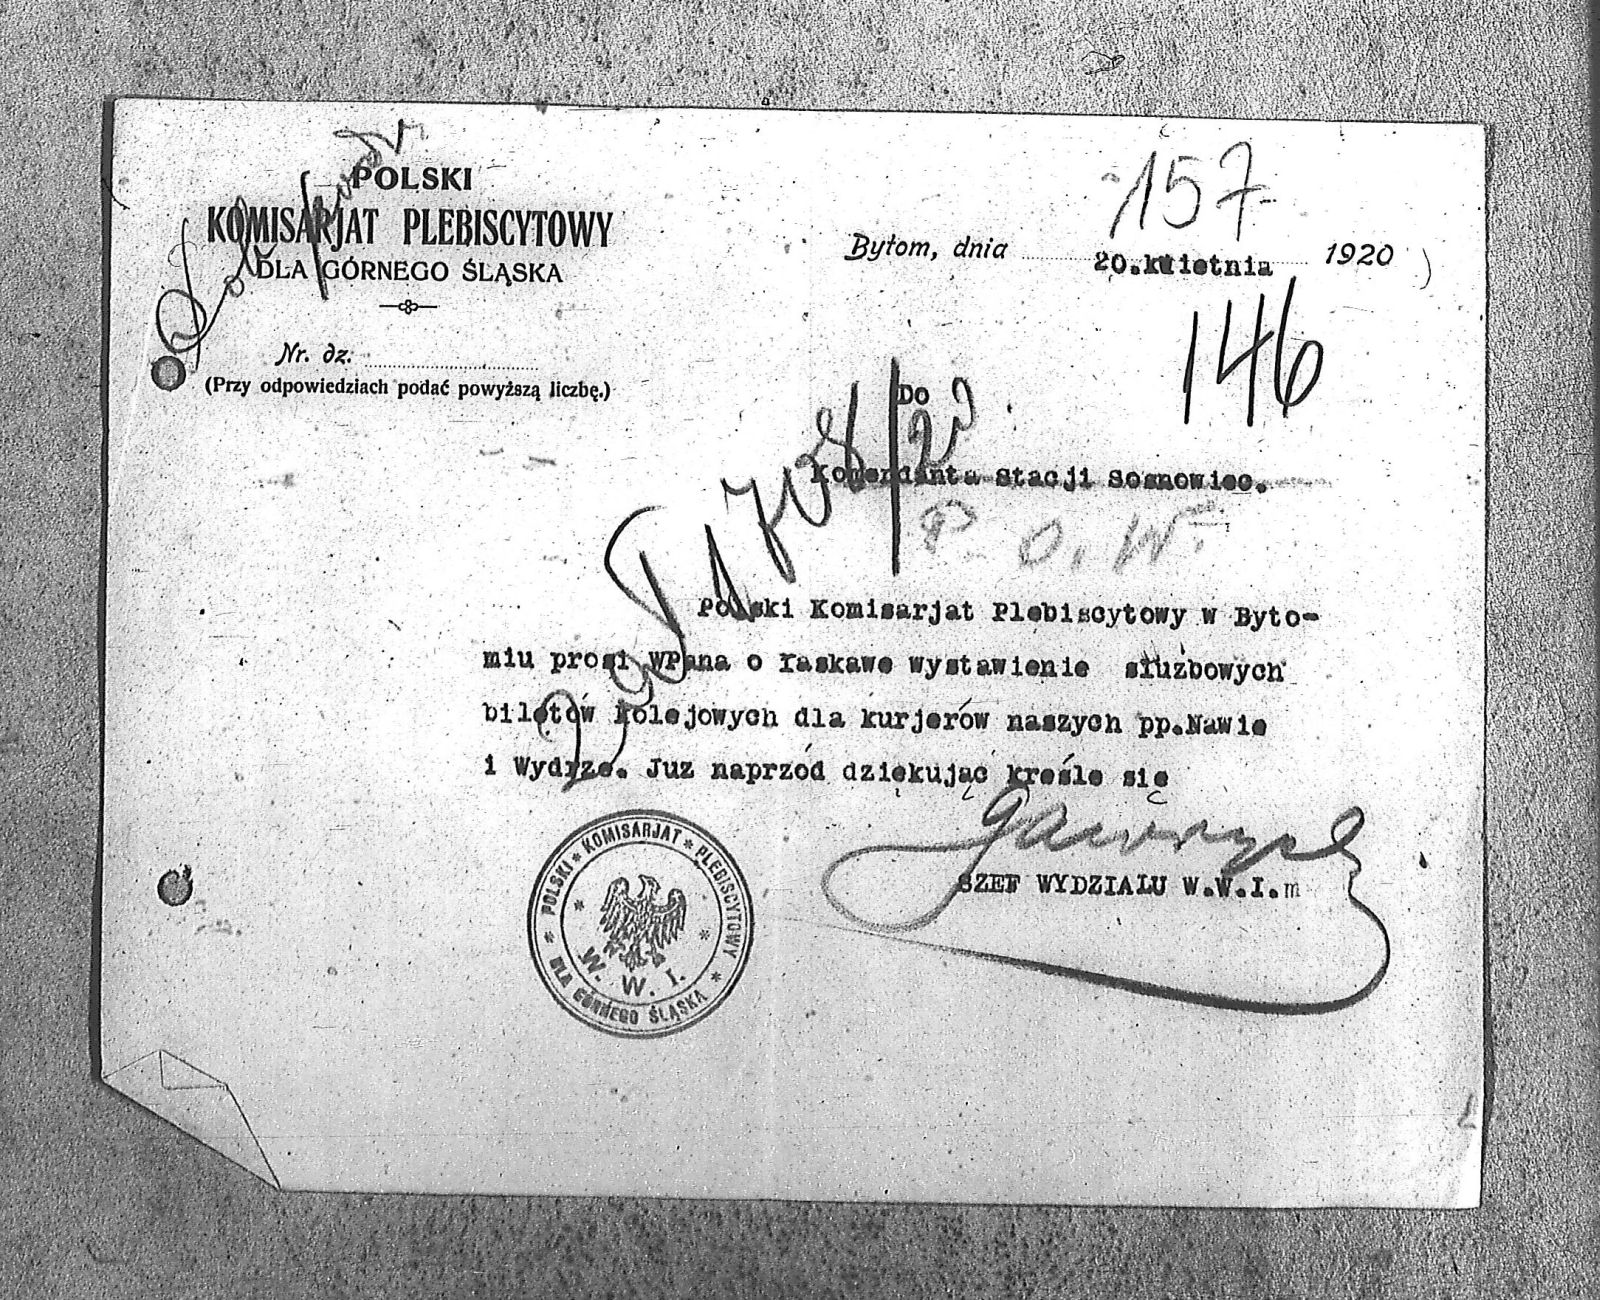 POLSKI
KOMISARJAT PLEBISCYTOWY
DLA GÓRNEGO ŚLĄSKA
Nr. dz.
(Przy odpowiedziach podać powyższą liczbę.)
157
Bytom, dnia 20.kwietnia 1920
146
Do
Komendanta Stacji Sosnowiec.
P. O. W.
Polski Komisarjat Plebiscytowy w Byto-
miu prosi WPana o łaskawe wystawienie służbowych
biletów kolejowych dla kurjerów naszych pp.Nawie
i Wydrze. Juz naprzód dziękując kreśle się
SZEF WYDZIAŁU W.W.I.m
POLSKI * KOMISARJAT * PLEBISCYTOWY * DLA GÓRNEGO ŚLĄSKA *
W. W. I.